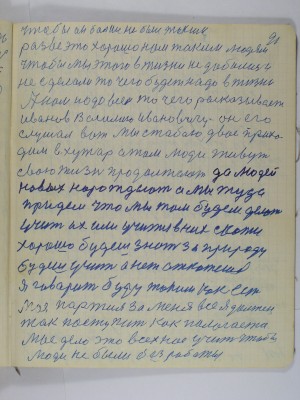 чтобы он болши не был таким
разве это хорошо нам таким людям
чтобы мы этого в жизни не добались
не сделали то чего будет надо в жизни
А нам надо всем то чего расказивает
иванов Василию ивановичу он его
слушал вот мы с табою двое прихо
дим в хутар а там люди живут
свою жизнь продалжают да людей
новых нарождают а мы туда
придем что мы там будем делат
учит их или учитв них
хорошо будем знат за природу
будем учит а нет откажемся
я говарит буду таким как ест
моя партия за меня вся
так поступит как палагается
мае дело это всех нас учит чтобы
люди не были без работы